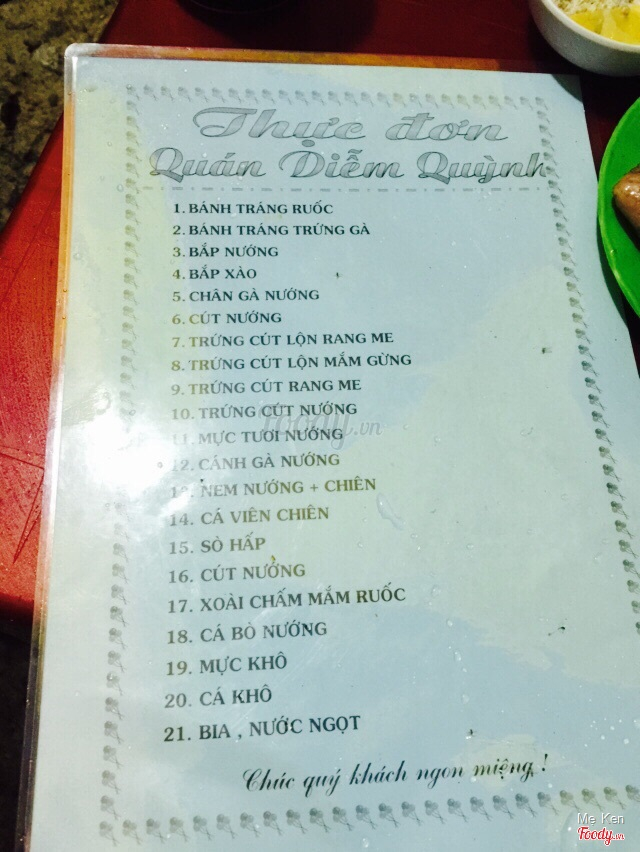 Thực đơn
Quán Diễm Quỳnh
1. BÁNH TRÁNG RUỐC
2. BÁNH TRÁNG TRỨNG GÀ
3. BẮP NƯỚNG
4. BẮP XÀO
5. CHÂN GÀ NƯỚNG
6. CÚT NƯỚNG
7. TRỨNG CÚT LỘN RANG ME
8. TRỨNG CÚT LỘN MẮM GỪNG
9. TRỨNG CÚT RANG ME
10. TRỨNG CÚT NƯỚNG
foody.vn
11. MỰC TƯƠI NƯỚNG
12. CÁNH GÀ NƯỚNG
13. NEM NƯỚNG + CHIÊN
14. CÁ VIÊN CHIÊN
15. SÒ HẤP
16. CÚT NƯỚNG
17. XOÀI CHẤM MẮM RUỐC
18. CÁ BÒ NƯỚNG
19. MỰC KHÔ
20. CÁ KHÔ
21. BIA , NƯỚC NGỌT
Chúc quý khách ngon miệng !
Me Ken
Foody.vn